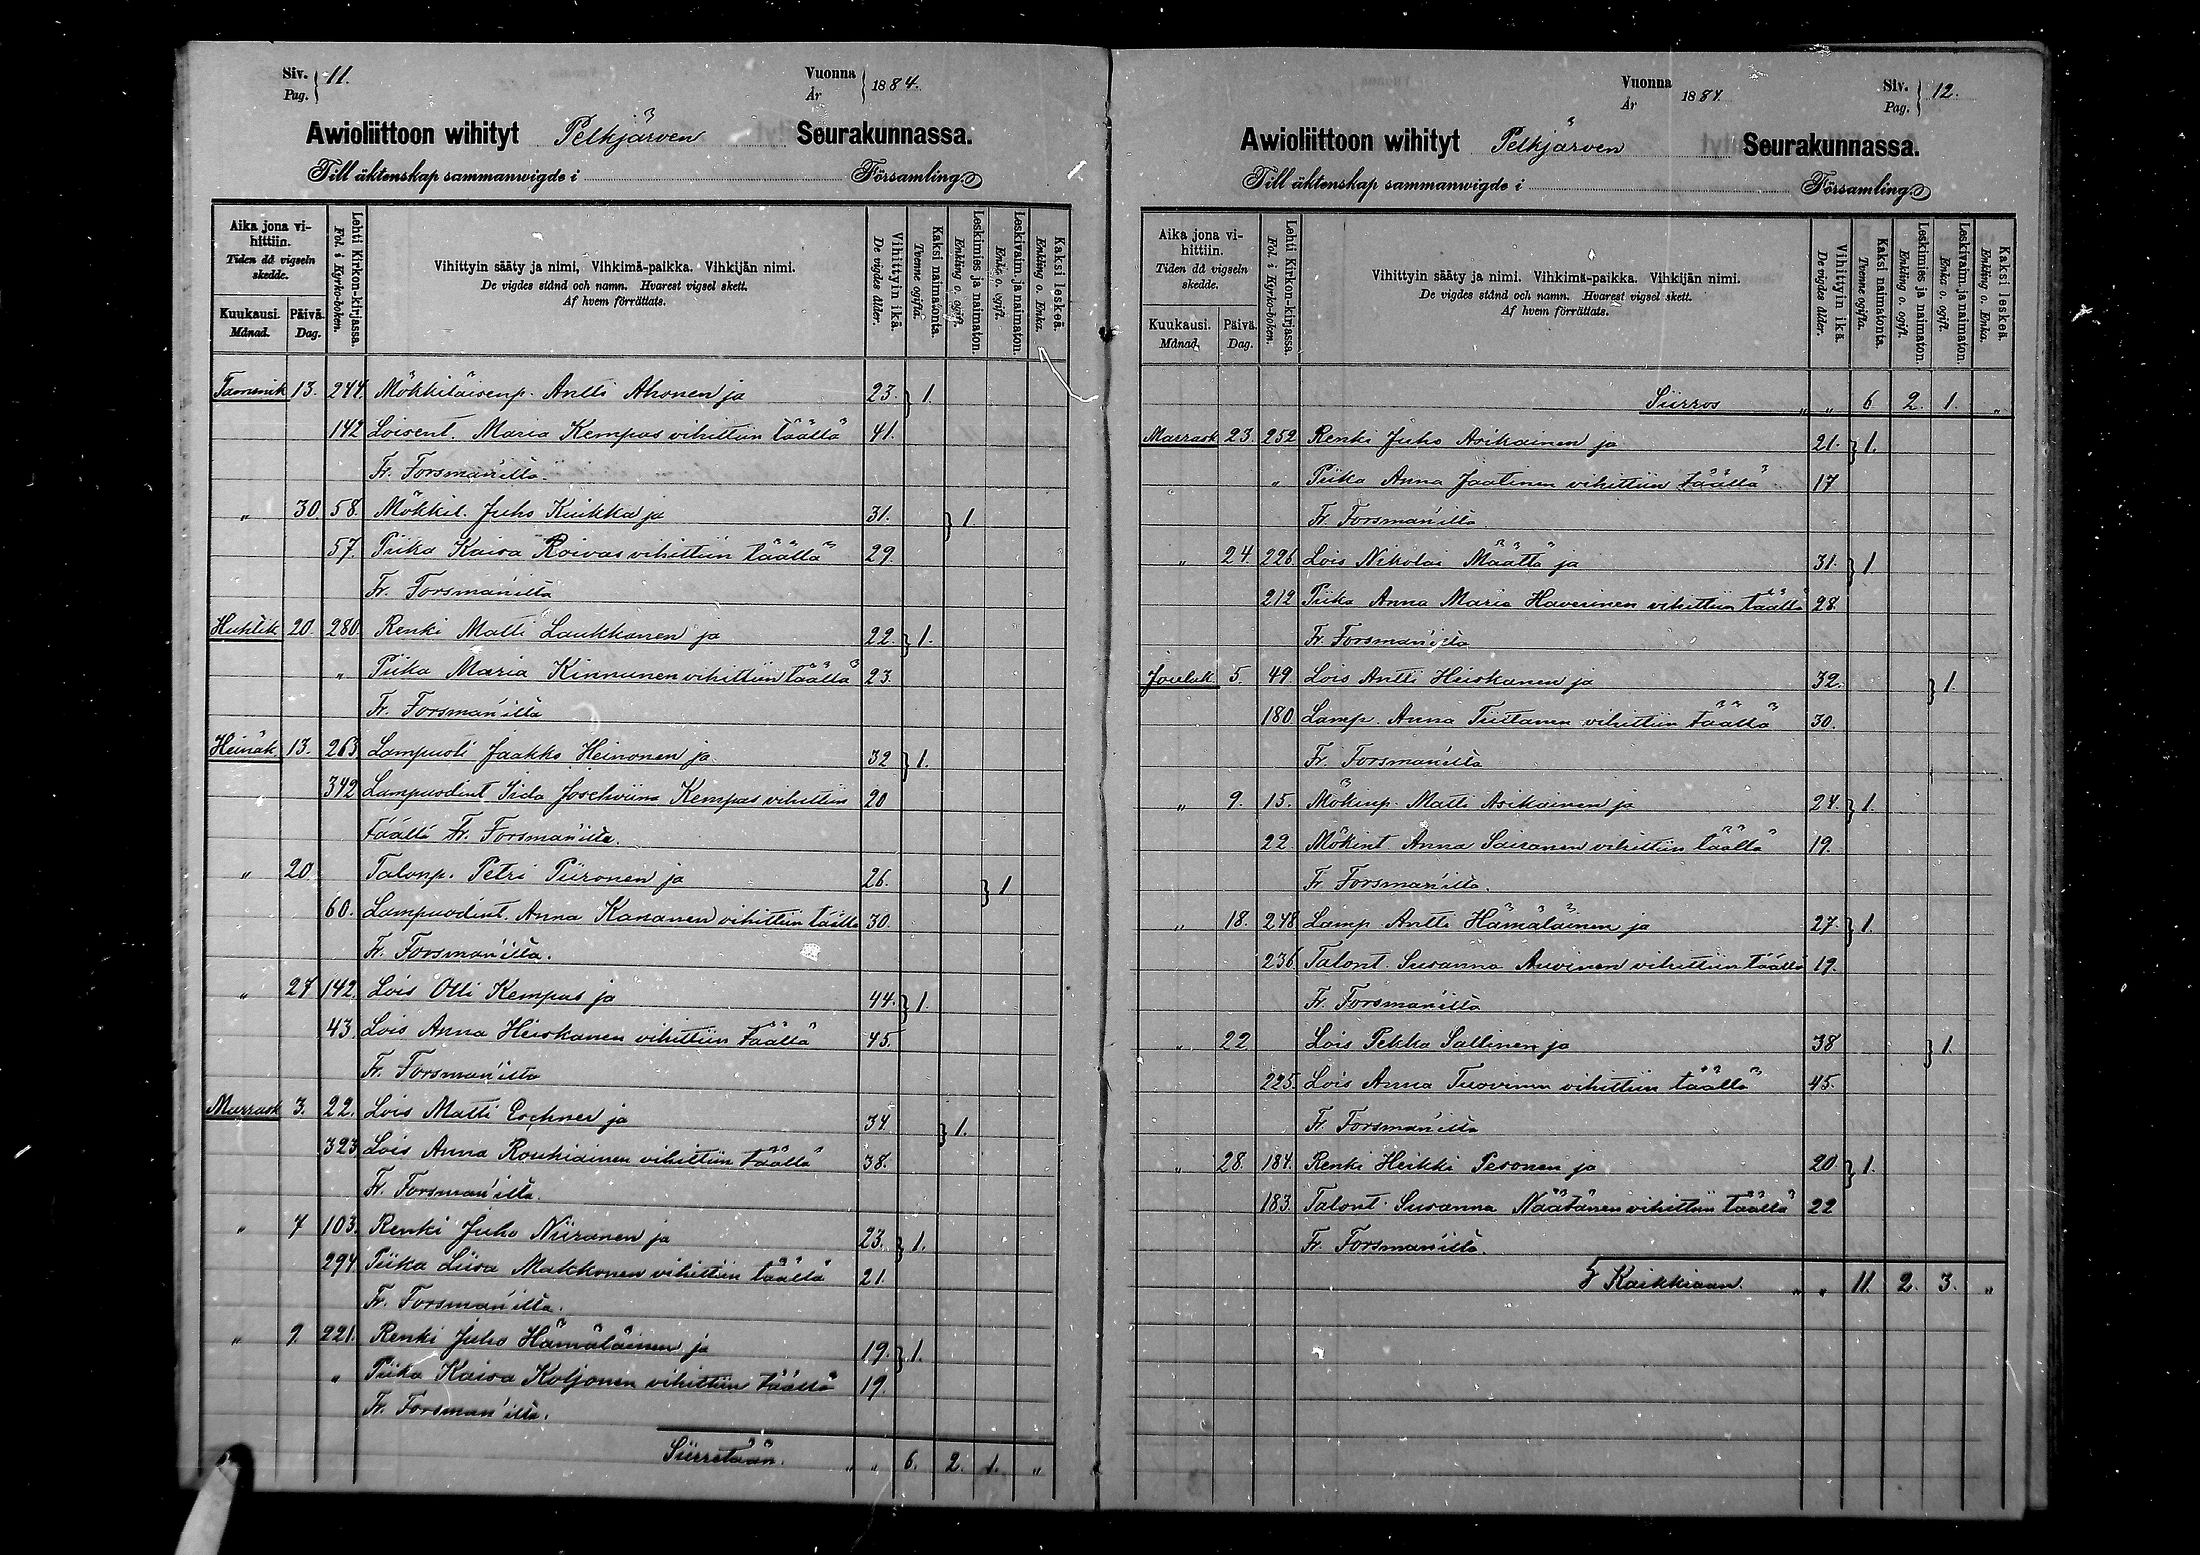 Siv. Pag. } 11.
Vuonna År } 1884.
Awioliittoon wihityt Pelkjärven Seurakunnassa.
Till äktenskap sammanwigde i Församling
Aika jona vihittiin. Tiden då vigseln skedde.
Kuukausi. Månad. Päivä. Dag.
Lehti Kirkon-kirjassa. Fol. i Kyrko-boken.
Vihittyin sääty ja nimi, Vihkimä-paikka. Vihkijän nimi.
De vigdes stånd och namn. Hvarest vigsel skett.
Af hvem förrättats.
Vihittyin ikä. De vigdes ålder.
Kaksi naimatonta. Tvenne ogifta.
Leskimies ja naimaton. Enkling o. ogift.
Leskivaim. ja naimaton. Enka o. ogift.
Kaksi leskeä. Enkling o. Enka.
Tammik 13. 244. Mökkiläisenp. Antti Ahonen ja 23. } 1.
142 Loisent. Maria Kempas vihittiin täällä 41.
Fr. Forsman'ilta.
„ 30. 58. Mökkil. Juho Kuikka ja 31. } 1.
57. Piika Kaisa Roivas vihittiin täällä 29.
Fr. Forsman'ilta
Huhtik 20. 280. Renki Matti Laukkanen ja 22. } 1.
„ Piika Maria Kinnunen vihittiin täällä 23.
Fr. Forsman'ilta
Heinäk 13. 263. Lampuoti Jaakko Heinonen ja 32 } 1.
342 Lampuodint Iida Josehviina Kempas vihittiin 20
täällä Fr. Forsman'ilta.
„ 20. Talonp. Petri Piironen ja 26. } 1
60. Lampuodint. Anna Kananen vihittiin täällä 30.
Fr. Forsman'ilta.
„ 27 142. Lois Olli Kempas ja 44. } 1.
43. Lois Anna Heiskanen vihittiin täällä 45.
Fr. Forsman'ilta
Marrask 3. 22. Lois Matti ja 34 } 1.
323 Lois Anna Rouhiainen vihittiin täällä 38.
Fr. Forsman'ilta.
„ 7 103. Renki Juho Niiranen ja 23. } 1.
294 Piika Liisa Makkonen vihittiin täällä 21.
Fr. Forsman'ilta.
„ 9. 221. Renki Juho Hämäläinen ja 19. } 1.
„ Piika Kaisa Koljonen vihittiin täällä 19.
Fr. Forsman'ilta.
Siirretään. „ „ 6. 2. 1. „
Vuonna År 1884.
Siv. Pag. } 12.
Awioliittoon wihityt Pelkjärven Seurakunnassa.
Till äktenskap sammanwigde i Församling
Aika jona vihittiin. Tiden då vigseln skedde.
Kuukausi. Månad. Päivä. Dag.
Lehti Kirkon-kirjassa. Fol. i Kyrko-boken.
Vihittyin sääty ja nimi. Vihkimä-paikka. Vihkijän nimi.
De vigdes stånd och namn. Hvarest vigsel skett.
Af hvem förrättats.
Vihittyin ikä. De vigdes ålder.
Kaksi naimatonta. Tvenne ogifta.
Leskimies ja naimaton. Enkling o. ogift.
Leskivaim. ja naimaton. Enka o. ogift.
Kaksi leskeä. Enkling o. Enka.
Siirros „ „ 6 2. 1. „
Marrask 23. 252 Renki Juho Asikainen ja 21. } 1.
„ Piika Anna Jaatinen vihittiin täällä 17
Fr. Forsman'ilta
„ 24. 226 Lois Nikolai Määttä ja 31. } 1
212 Piika Anna Maria Haverinen vihittiin täällä 28.
Fr. Forsman'ilta
Jouluk 5. 49. Lois Antti Heiskanen ja 32. } 1.
180 Lamp. Anna Tiittanen vihittiin täällä 30.
Fr. Forsman'ilta
„ 9. 15. Mökinp. Matti Asikainen ja 24. } 1.
22. Mökint Anna Saisanen vihittiin täällä 19.
Fr Forsman'ilta.
„ 18. 248 Lamp Antti Hämäläinen ja 27. } 1.
236 Talont. Susanna Auvinen vihittiin täällä 19.
Fr. Forsman'ilta
„ 22 Lois Pekka Sallinen ja 38 } 1.
225. Lois Anna Tuovinen vihittiin täällä 45.
Fr. Forsman'ilta
„ 28. 184. Renki Heikki Pesonen ja 20. } 1.
183. Talont. Susanna Näätänen vihittiin täällä 22
Fr. Forsman'ilta.
Kaikkiaan. „ „ 11. 2. 3. „